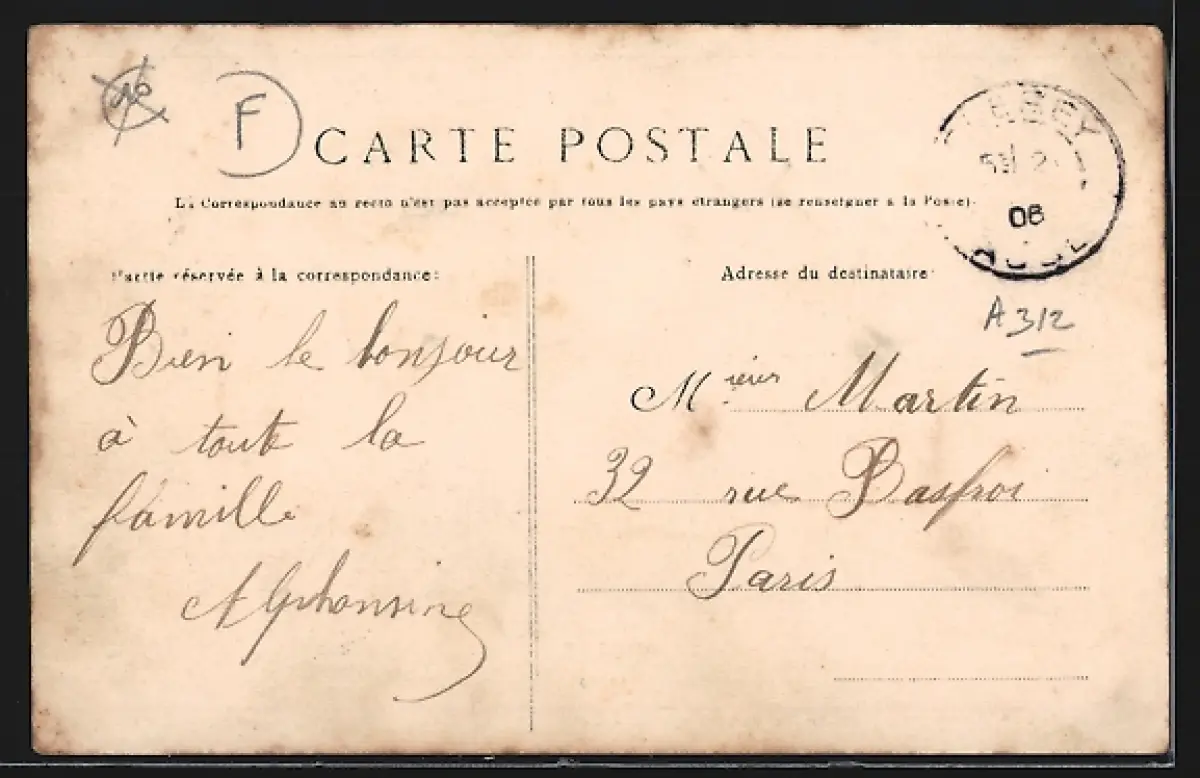 F
CARTE POSTALE
La Correspondance au recto n'est pas acceptée par tous les pays étrangers (se renseigner à la Poste).
06
Partie réservée à la correspondance:
Adresse du destinataire:
A312
Bien le bonjour
à toute la
famille
Alphonsine
Mrieur Martin
32 rue Basfroi
Paris